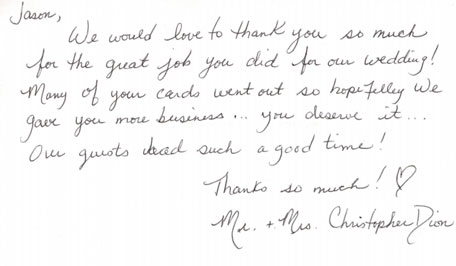 Jason,
We would love to thank you so much
for the great job you did for our wedding!
Many of your cards went out so hopefully we
gave you more business... you deserve it...
Our guests had such a good time!
Thanks so much! ♡
Mr. + Mrs. Christopher Dion